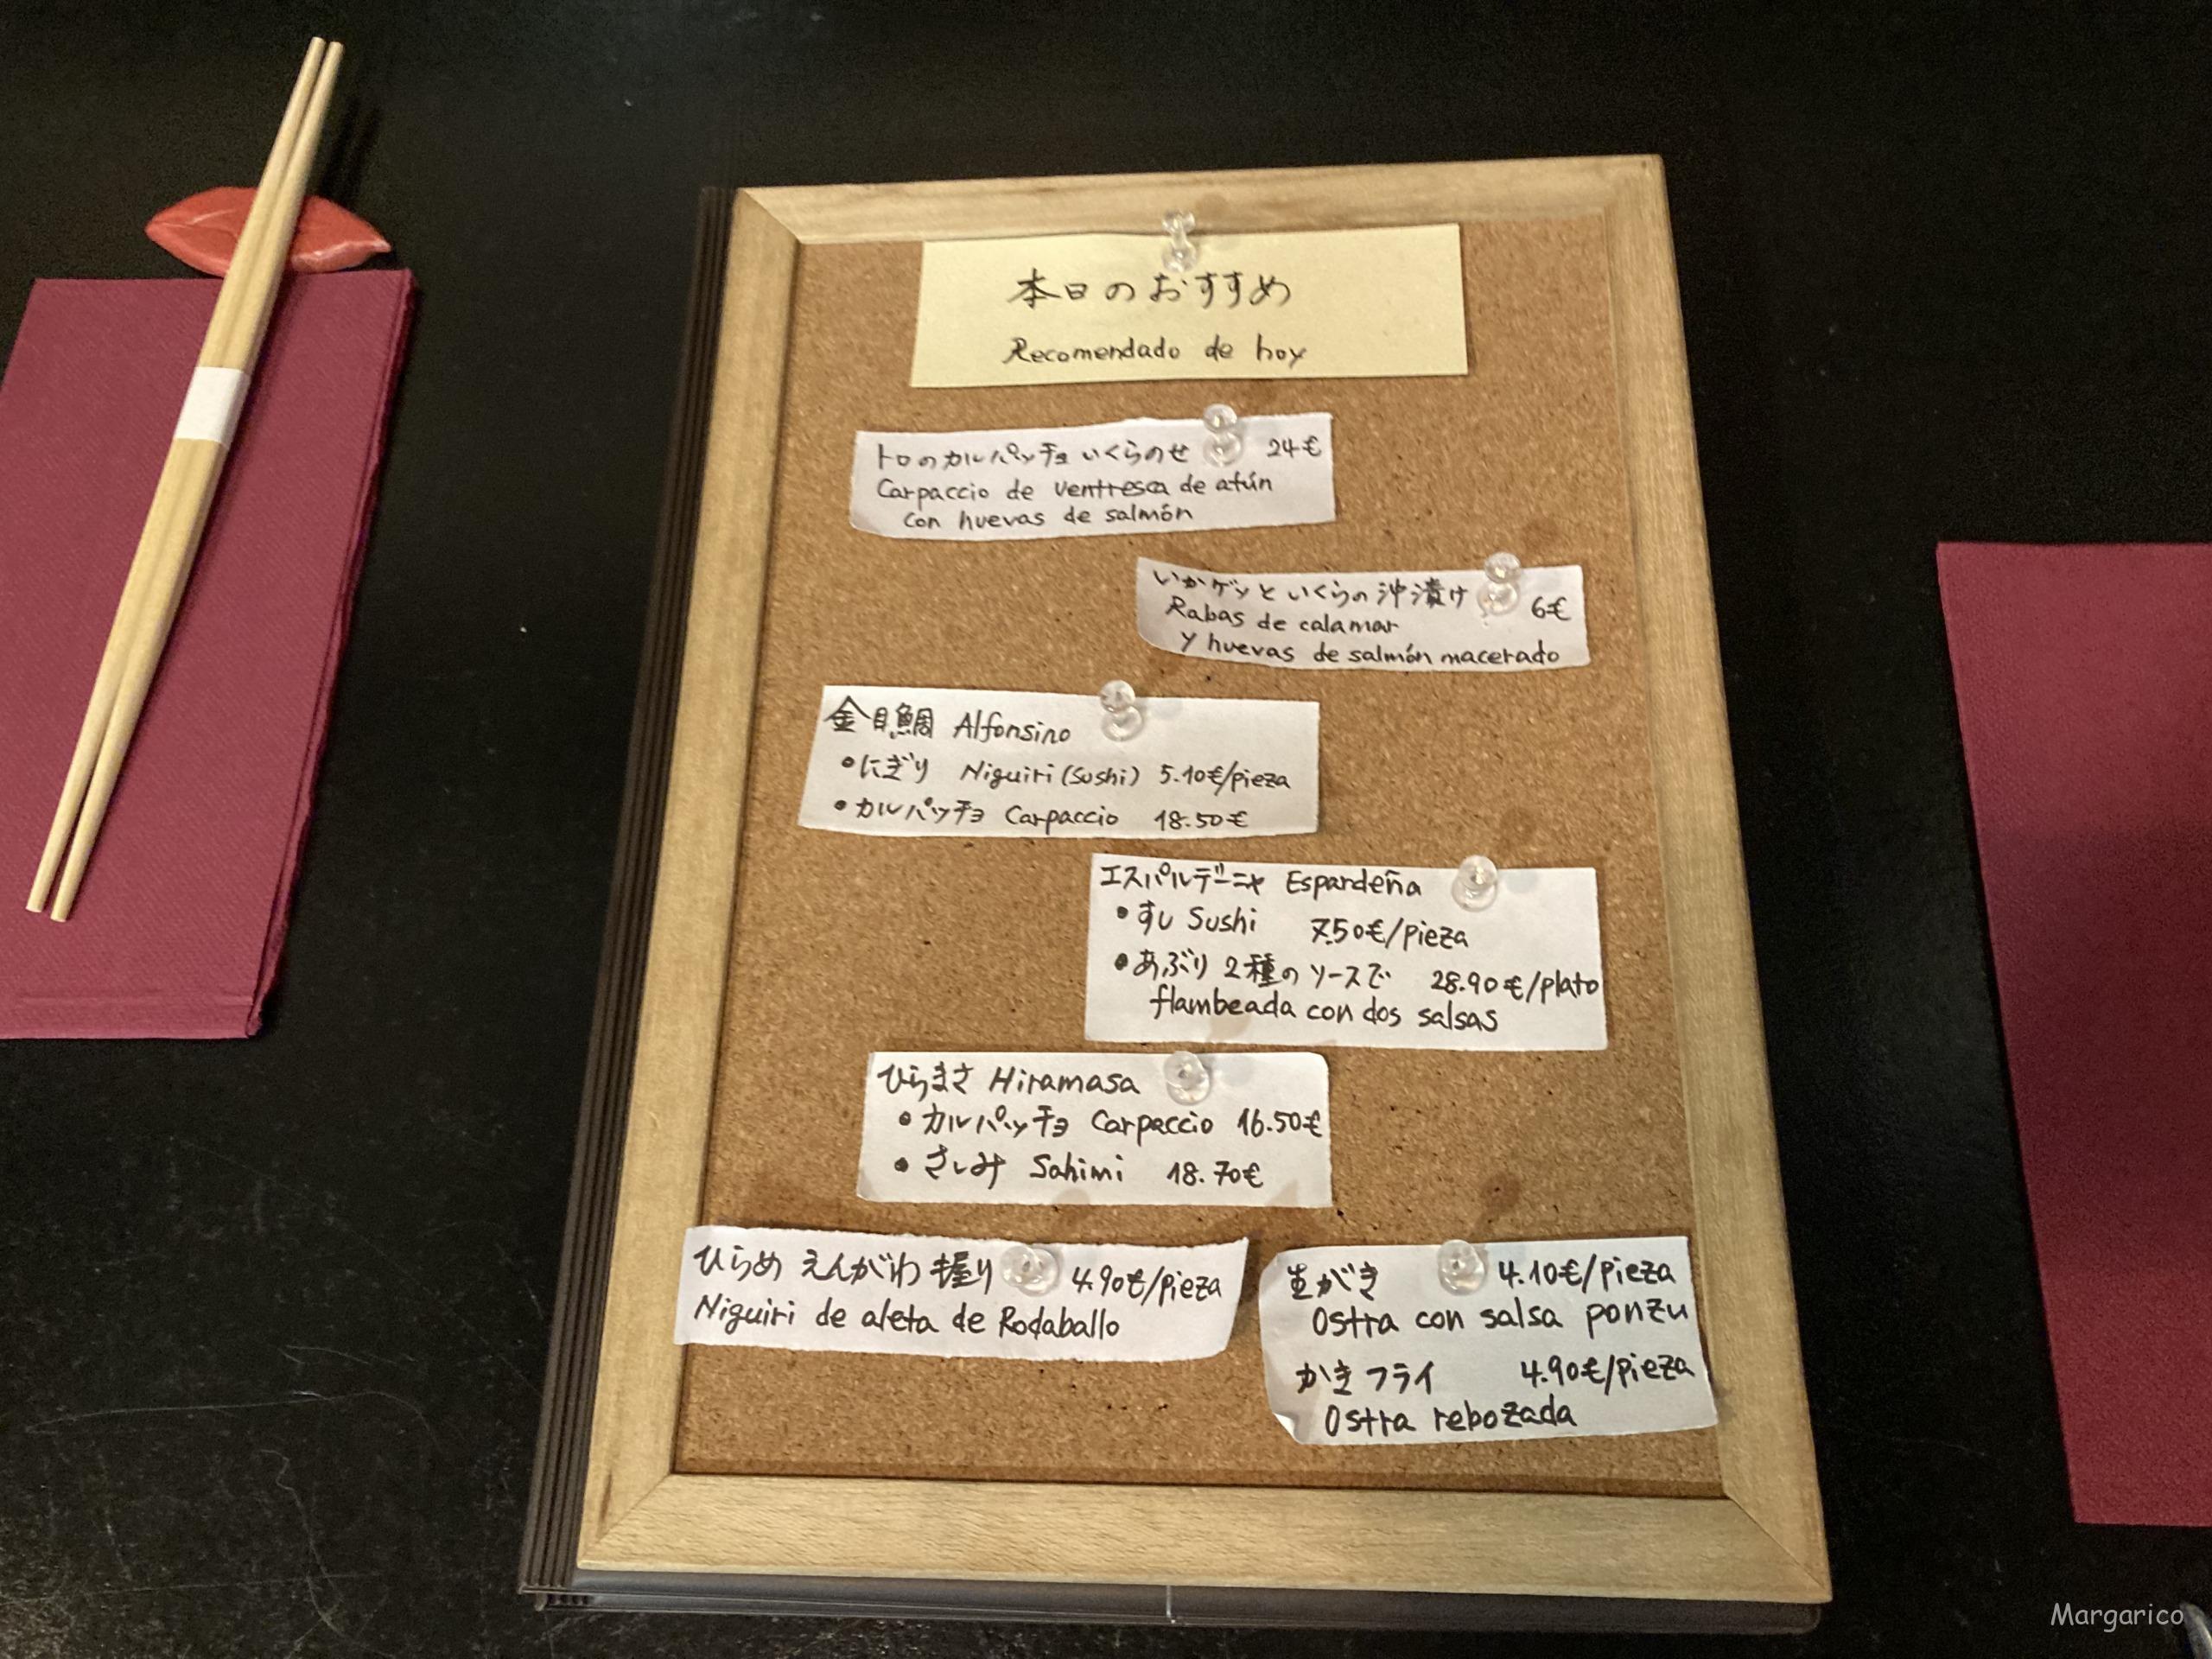 本日のおすすめ
Recomendado de hoy
トロのカルパッチョいくらのせ 24€
Carpaccio de ventresca de atún
con huevas de salmón
いかゲソといくらの沖漬け 6€
Rabas de calamar
y huevas de salmón macerado
金目鯛 Alfonsino
•にぎり Niguiri (sushi) 5.10€/pieza
•カルパッチョ Carpaccio 18.50€
エスパルデーニャ Espardeña
•すし Sushi 7.50€/pieza
•あぶり 2種のソースで 28.90€/plato
flambeada con dos salsas
ひらまさ Hiramasa
•カルパッチョ Carpaccio 16.50€
•さしみ Sahimi 18.70€
ひらめ えんがわ 握り 4.90€/pieza
Niguiri de aleta de Rodaballo
生がき 4.10€/pieza
Ostra con salsa ponzu
かきフライ 4.90€/pieza
Ostra rebozada
Margarico